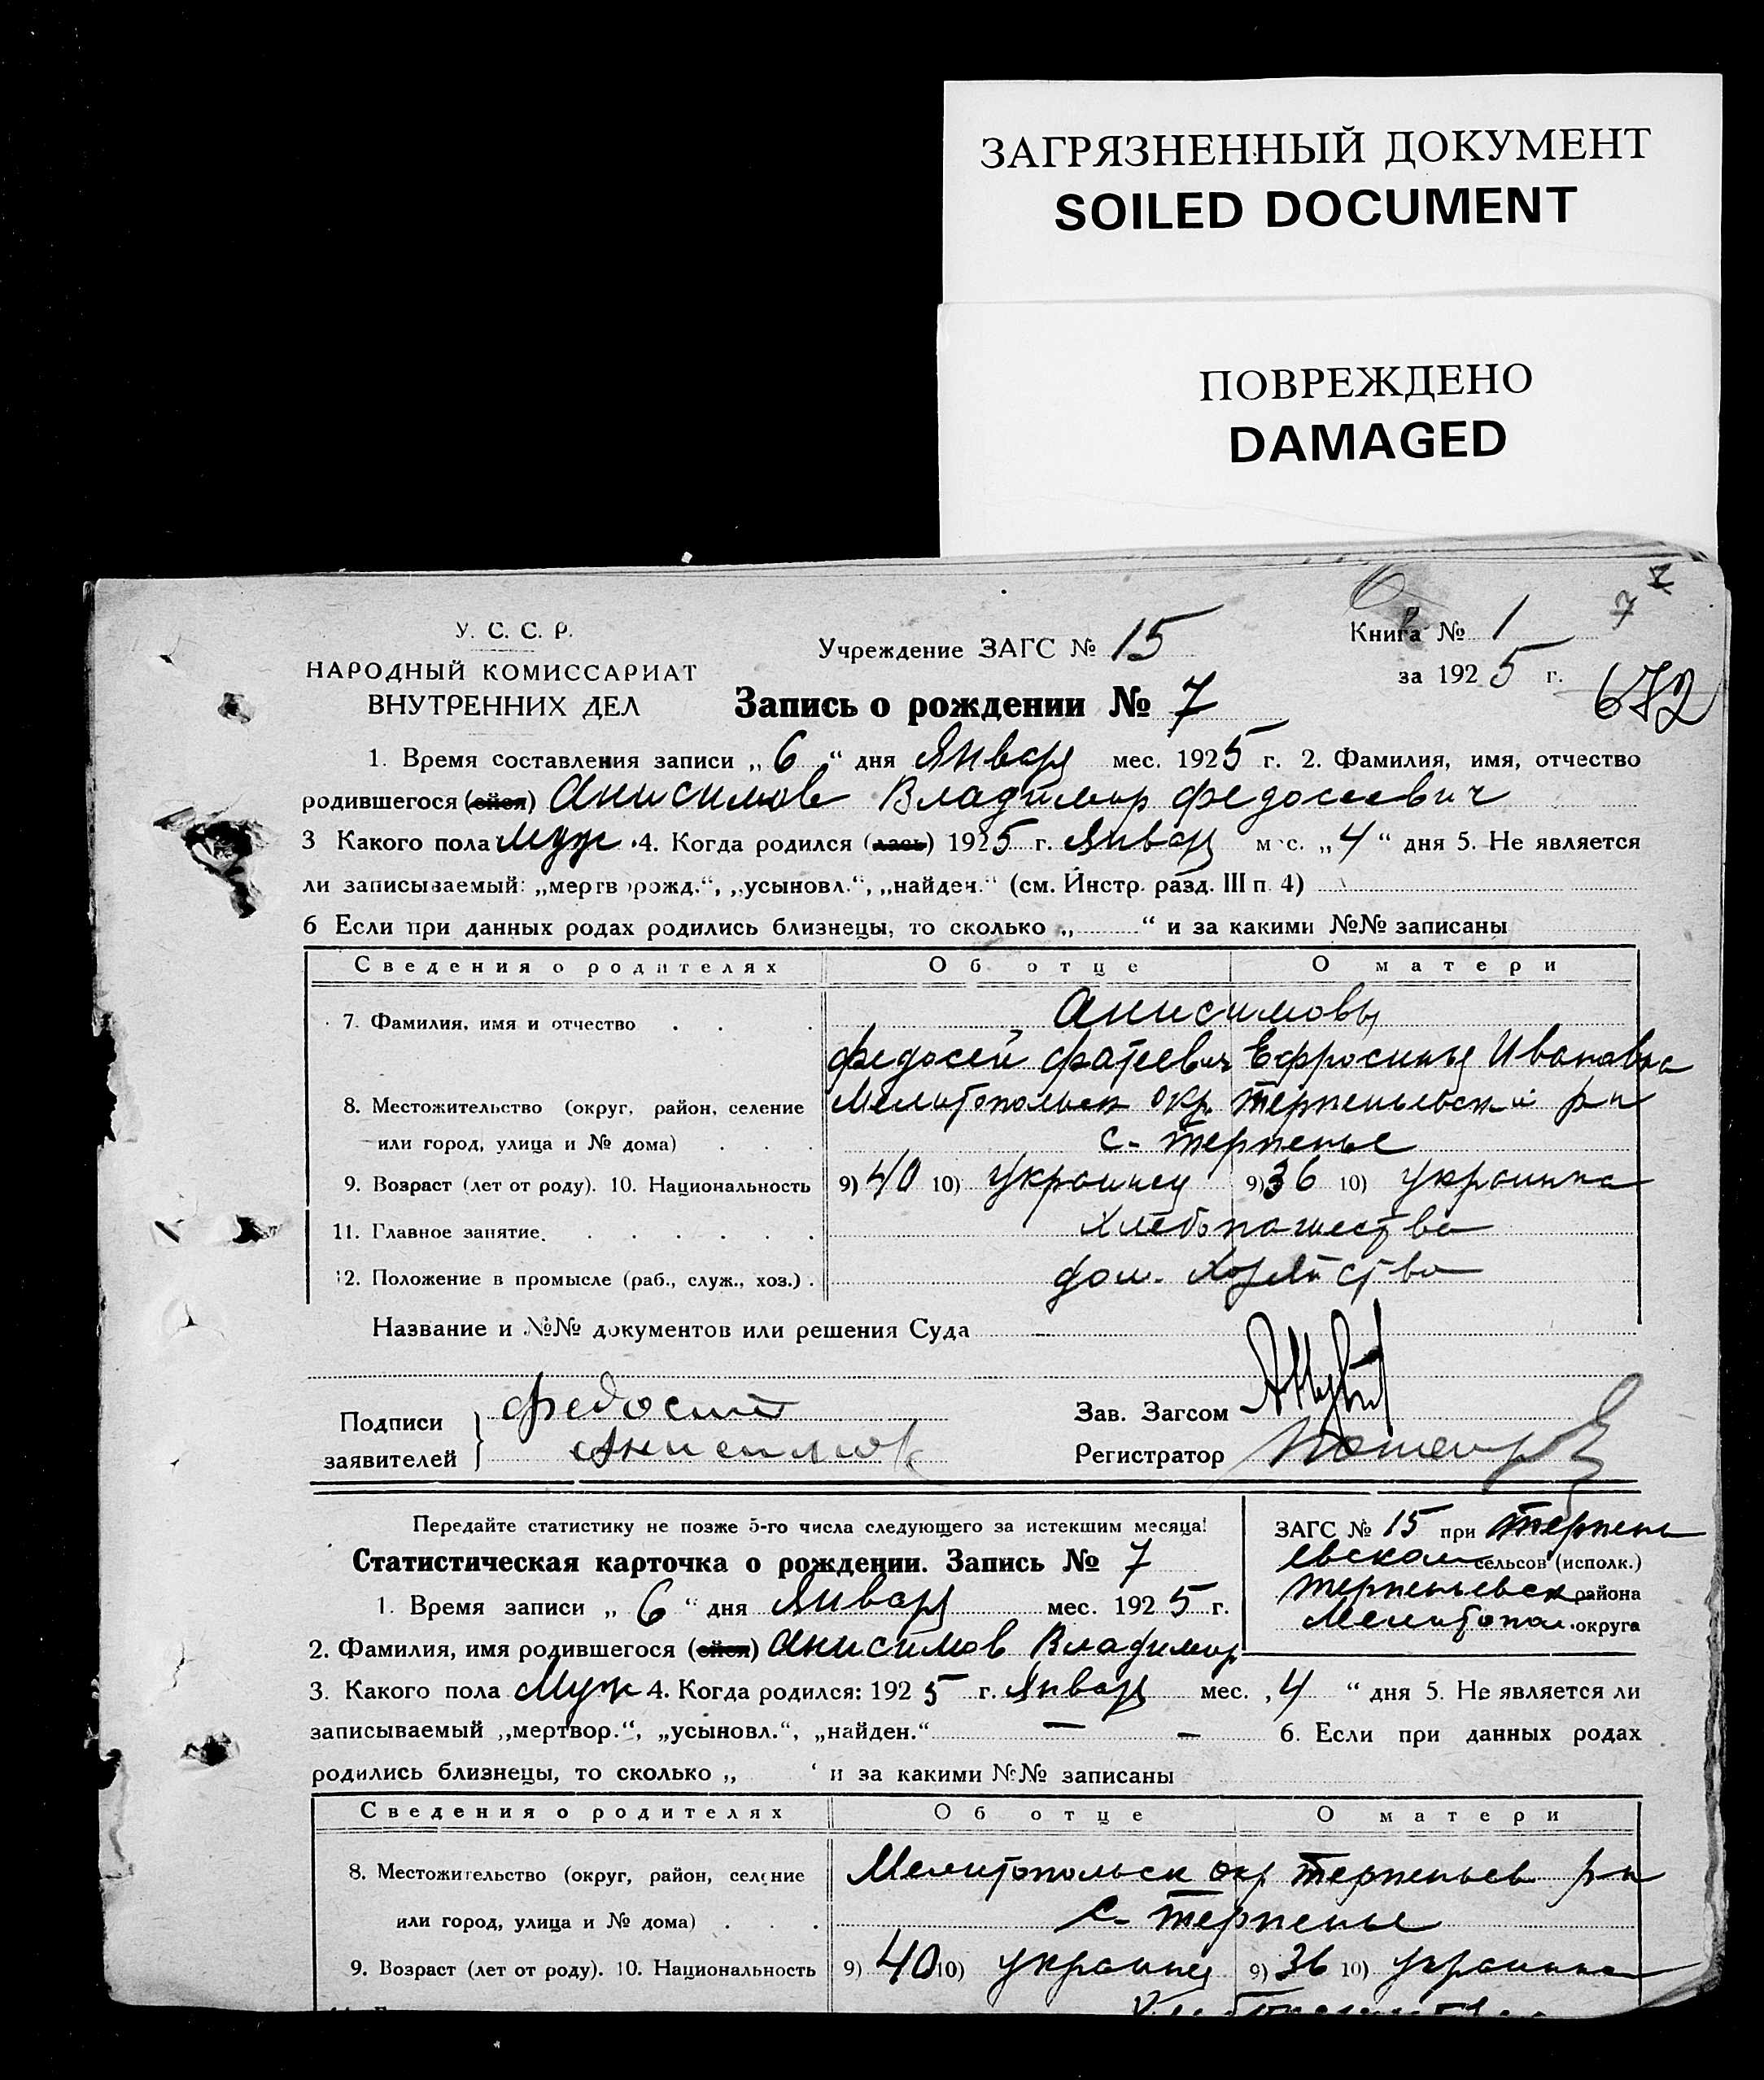 ЗАГРЯЗНЕННЫЙ ДОКУМЕНТ
SOILED DOCUMENT
ПОВРЕЖДЕНО
DAMAGED
7
У. С. С. Р.
НАРОДНЫЙ КОМИССАРИАТ
ВНУТРЕННИХ ДЕЛ
Учреждение ЗАГС № 15
Книга № 1
за 1925 г.
672
Запись о рождении № 7
1. Время составления записи „6“ дня Января мес. 1925 г. 2. Фамилия, имя, отчество
родившегося (ейся) Анисимов Владимир Федосеевич
3 Какого пола Муж. 4. Когда родился (лась) 1925 г. Январ мес. „4“ дня 5. Не является
ли записываемый: „мертворожд.“, „усыновл.“, „найден.“ (см. Инстр. разд. III п. 4)
6 Если при данных родах родились близнецы, то сколько „ “ и за какими №№ записаны
Сведения о родителях Об отце О матери
7. Фамилия, имя и отчество Анисимовы
Федосей Фатеевич Ефросинья Ивановна
8. Местожительство (округ, район, селение Мелитопольск окр. Терпеньевский р-н
или город, улица и № дома) с- Терпенье
9. Возраст (лет от роду). 10. Национальность 9) 40 10) украинец 9) 36 10) украинка
11. Главное занятие. Хлебопашество
12. Положение в промысле (раб., служ., хоз.) . дом. Хозяйство
Название и №№ документов или решения Суда
Подписи Федосий Зав. Загсом
заявителей Анисимов Регистратор
Передайте статистику не позже 5-го числа следующего за истекшим месяца!
Статистическая карточка о рождении. Запись № 7
ЗАГС № 15 при Терпень
евском сельсов (исполк.)
Терпеньевск района
Мелитопол. округа
1. Время записи „6“ дня Января мес. 1925 г.
2. Фамилия, имя родившегося (ейся) Анисимов Владимир
3. Какого пола Муж 4. Когда родился: 1925 г. Январ мес. „4“ дня 5. Не является ли
записываемый „мертвор.“, „усыновл.“, „найден.“ — — 6. Если при данных родах
родились близнецы, то сколько „ “ и за какими №№ записаны
Сведения о родителях Об отце О матери
8. Местожительство (округ, район, селение Мелитопольск окр Терпеньев р-н
или город, улица и № дома) с- Терпенье
9. Возраст (лет от роду). 10. Национальность 9) 40 10) украинец 9) 36 10) украинка